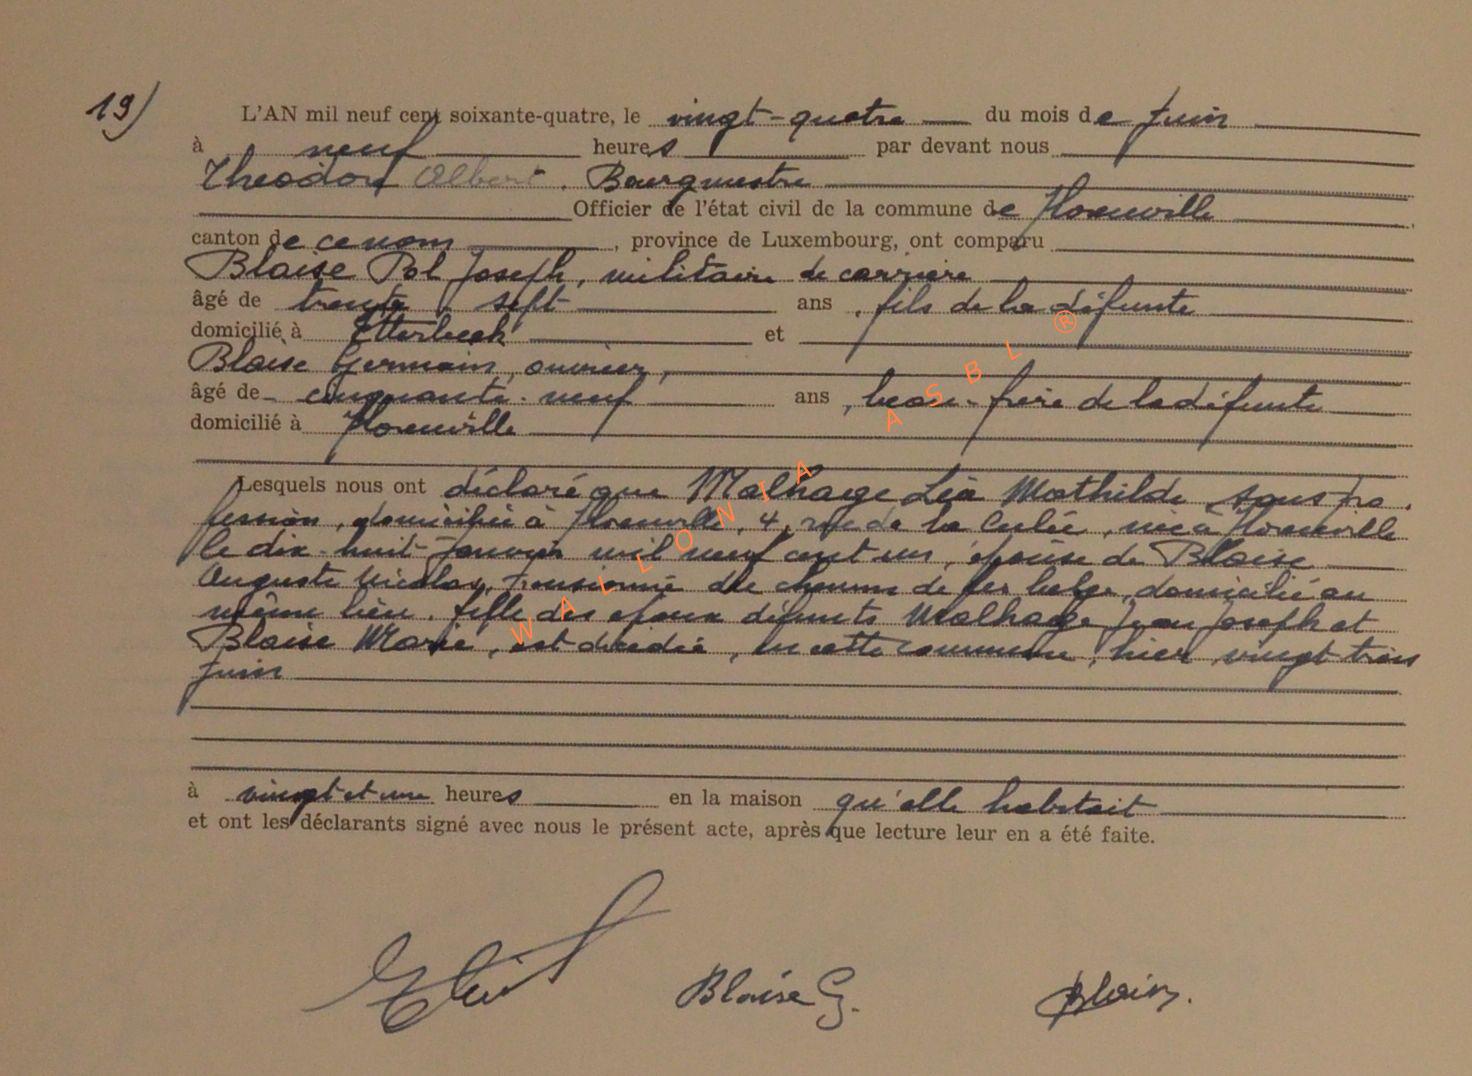 19)
L'AN mil neuf cent soixante-quatre, le vingt-quatre du mois de Juin
à neuf heures par devant nous
Théodore Albert. Bourgmestre
Officier de l'état civil de la commune de Florenville
canton de ce nom, province de Luxembourg, ont comparu
Blaise Pol Joseph, militaire de carrière
âgé de trente sept ans, fils de la défunte
domicilié à Etterbeek et
Blaise Germain, ouvrier,
âgé de cinquante-neuf ans, beau-frère de la défunte
domicilié à Florenville
Lesquels nous ont déclaré que Malhage Léa Mathilde sans pro.
fession, domiciliée à Florenville, 4, rue de la Culée, née à Florenville
le dix-huit Janvier mil neuf cent un, épouse de Blaise
Auguste Nicolas, Pensionné du chemin de fer belge, domicilié au
même lieu. fille des époux défunts Malhage Jean Joseph et
Blaise Marie, est décédée, en cette commune, hier vingt trois
Juin
à vingt et une heures en la maison qu'elle habitait
et ont les déclarants signé avec nous le présent acte, après que lecture leur en a été faite.
Blaise G.
Blaise
WALLONIA ASBL ®